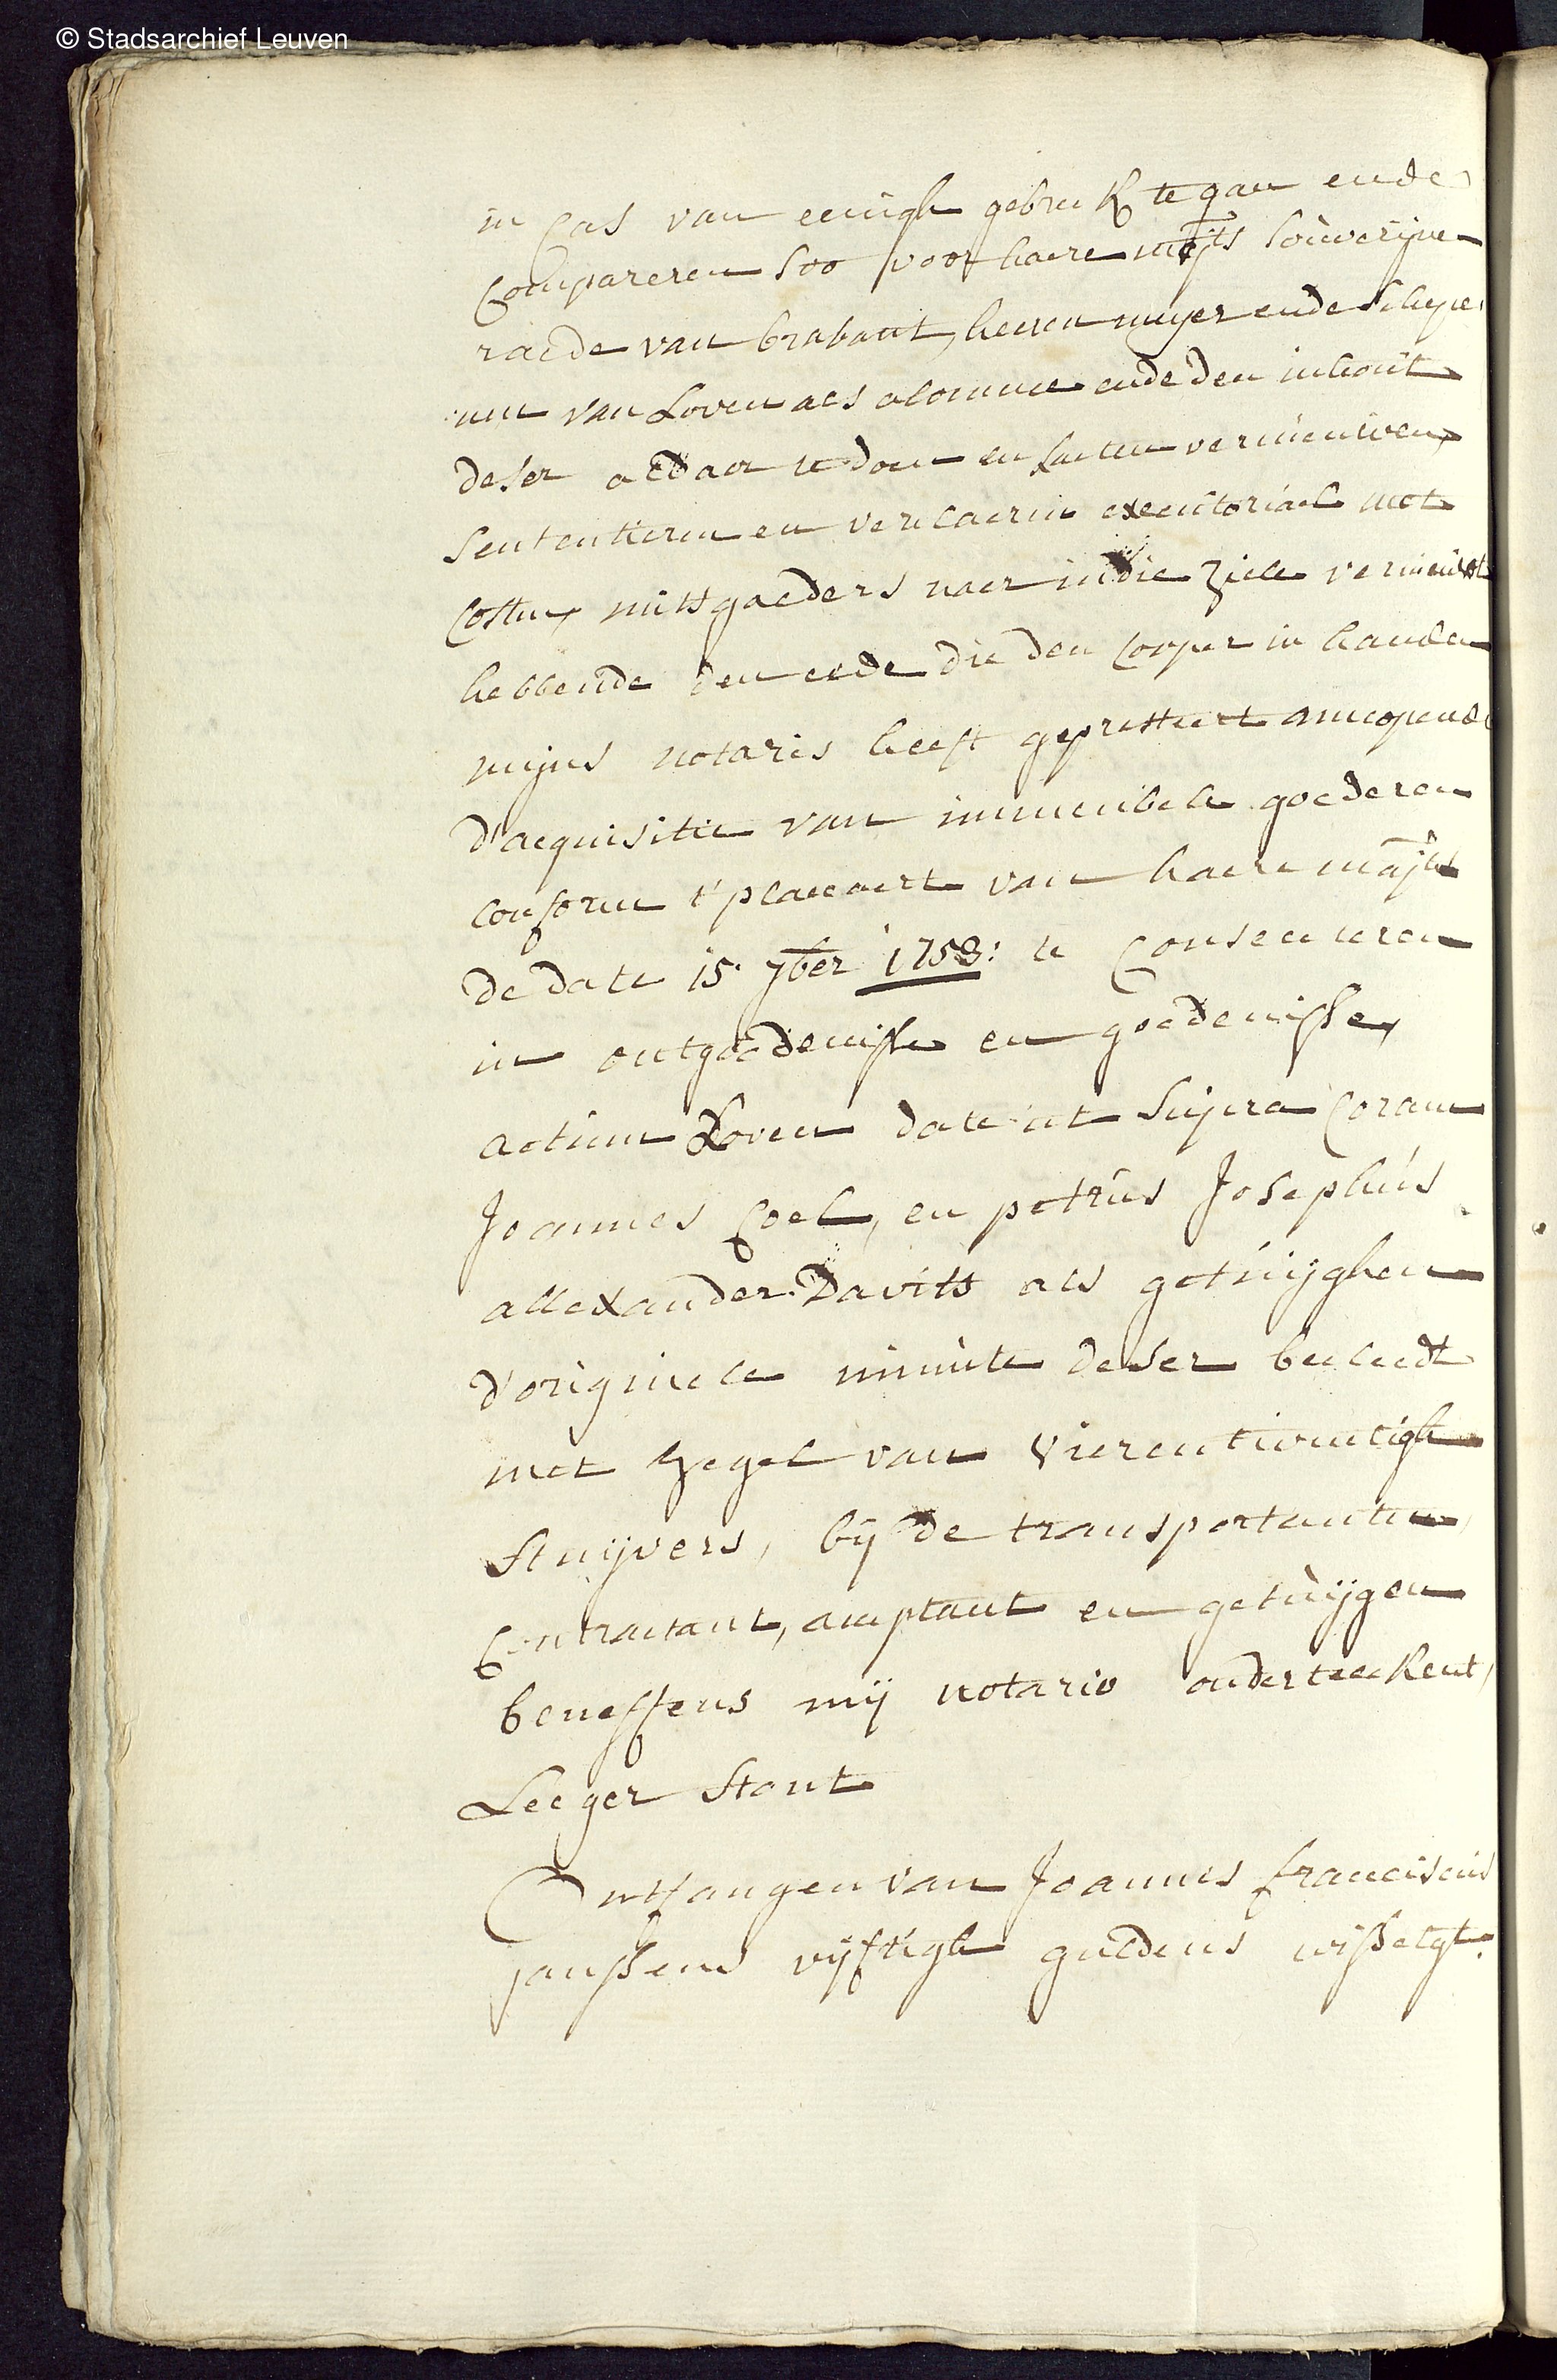 © Stadsarchief Leuven
in cas van eenigh gebreck te gaen ende
compareren soo voor haere majts soùverijnen
raede van brabant, heeren meyer ende schepe
nen van Loven als alomme ende den inhoùt
deser aldaer te doen en laeten vernieuwen,
sententieren en verclaeren executoriael met
costen, mitsgaeders naer in die ziele vernieuwt
hebbende den eede die den cooper in handen
mijns notaris heeft gepresteert aengaende
d'acquisitie van immeubele goederen
conform t'placcaert van haere majts
de date 15. 7ber 1753: te consenteren
in ontgoedenisse en goedenisse,
actum Loven date ut supra coram
Joannes Coel, en petrùs Josephùs
allexander Davits als getùijghen
d'originele minùte deser becleedt
met zegel van vierentwintigh
stuijvers, bij de transportanten,
contractant, acceptant en getùijgen
beneffens mij notario onderteeckent,
Leeger stont
Ontfangen van Joannes franciscùs
janssens vijftigh guldens wisselgt.